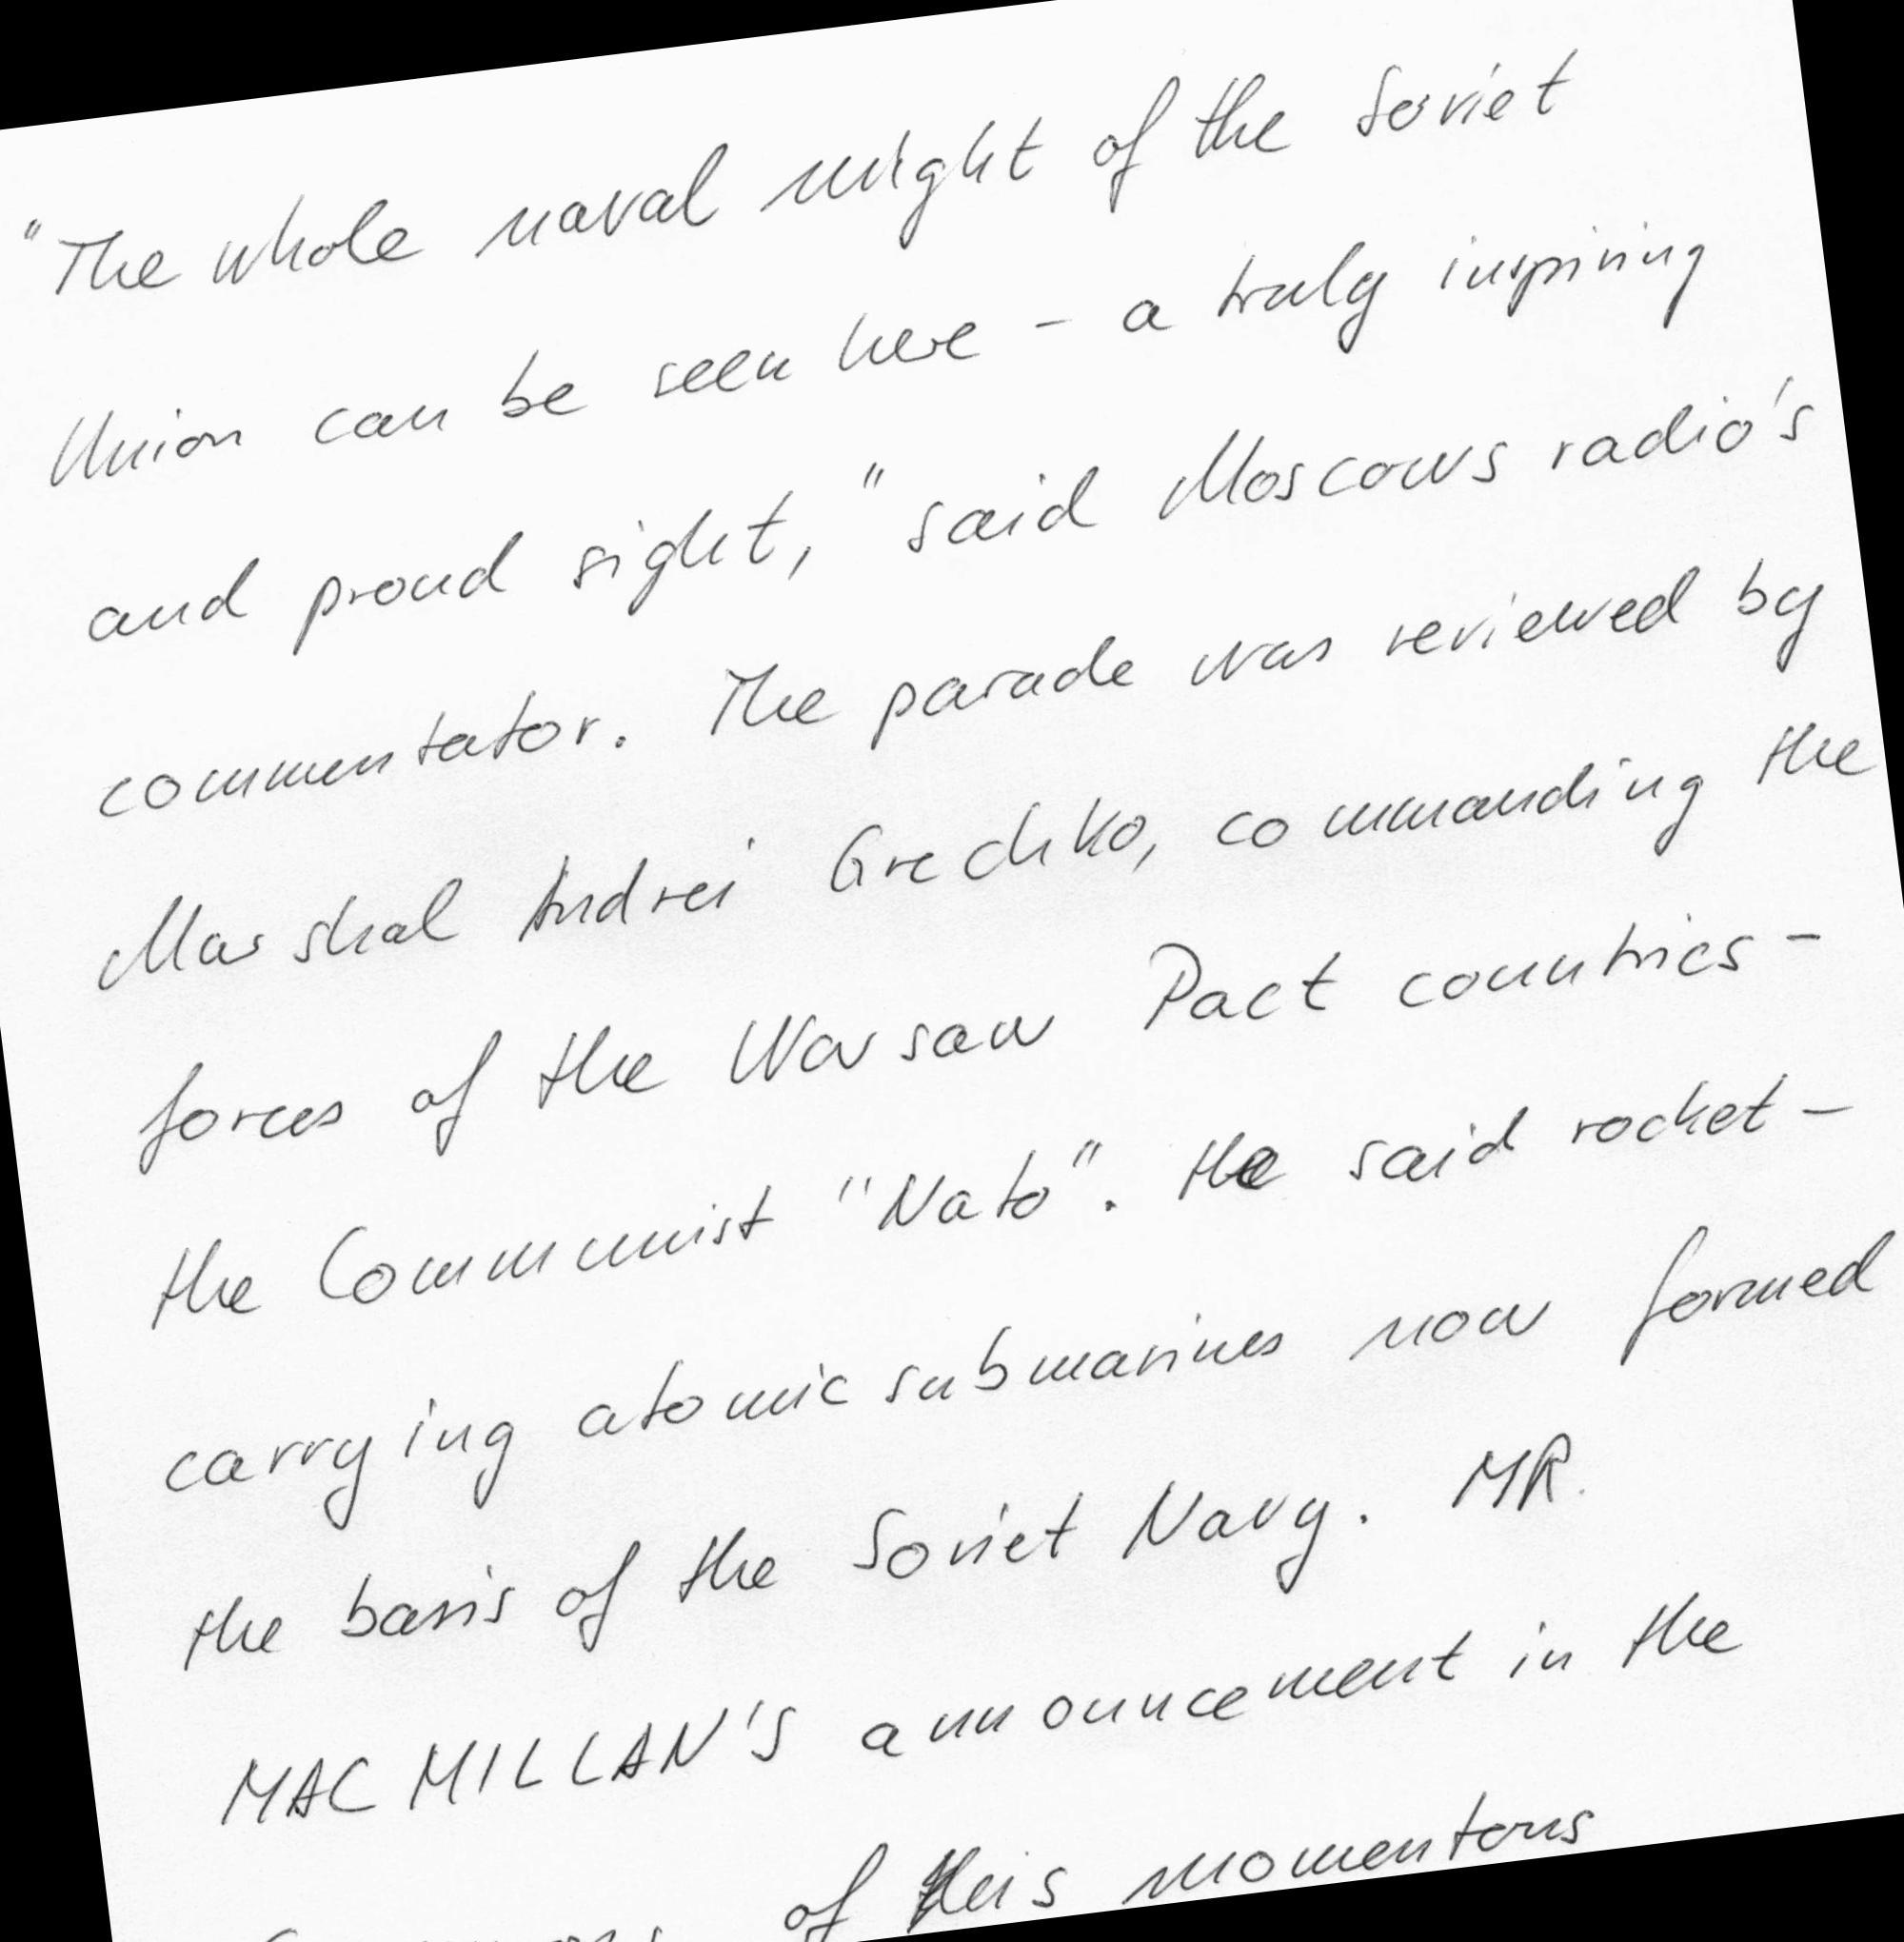 "The whole naval might of the Soviet
Union can be seen here - a truly inspiring
and proud sight," said Moscows radio's
commentator. The parade was reviewed by
Marshal Andrei Grechko, commanding the
forces of the Warsaw Pact countries -
the Communist "Nato". He said rocket-
carrying atomic submarines now formed
the basis of the Soviet Navy. MR.
MACMILLAN'S announcement in the
of this momentous